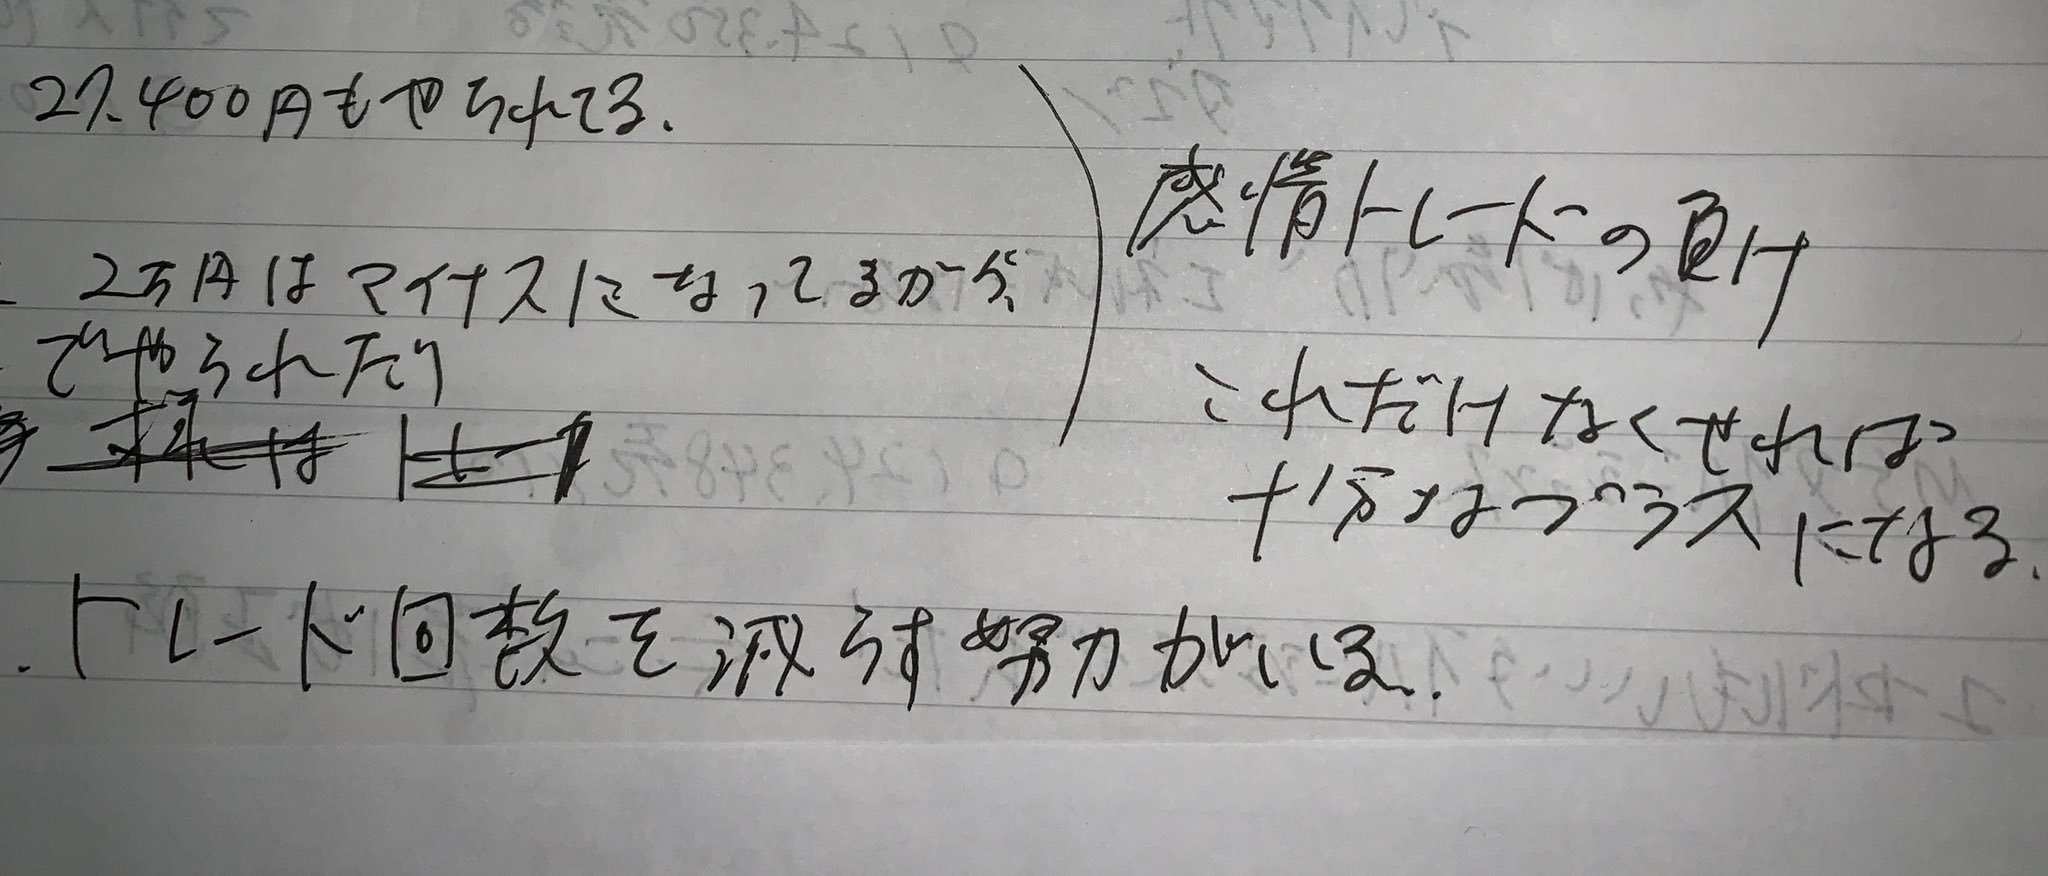 27.400円もやられてる.
2万円はマイナスになってるから、
でやられたり
感情トレードの負け
これだけなくせれば
十分なプラスになる.
トレード回数を減らす努力がいる.